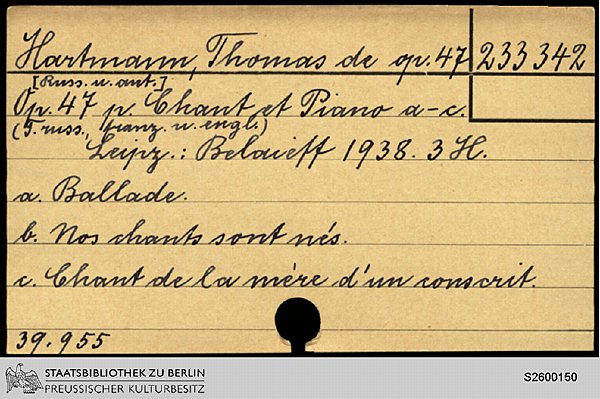 Hartmann, Thomas de op. 47 233 342
[Russ. u. ant.]
Op. 47 p. Chant et Piano a-c.
(T. russ., franz. u. engl.)
Leipz.: Belaieff 1938. 3 H.
a. Ballade.
b. Nos chants sont nés.
c. Chant de la mére d'un conscrit.
39.955
STAATSBIBLIOTHEK ZU BERLIN
PREUSSISCHER KULTURBESITZ
S2600150